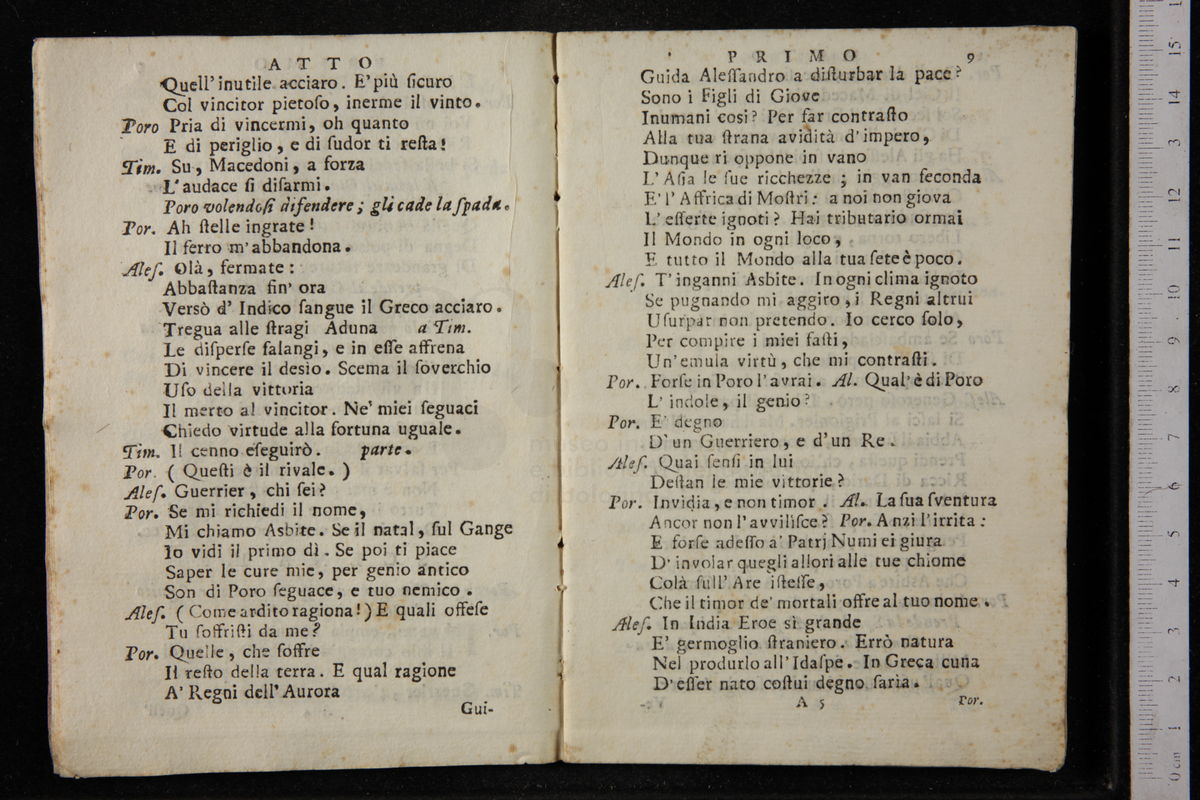 ATTO
Quell' inutile acciaro. E' più ſicuro
Col vincitor pietoſo, inerme il vinto.
Poro Pria di vincermi, oh quanto
E di periglio, e di ſudor ti reſta!
Tim. Su, Macedoni, a forza
L'audace ſi diſarmi.
Poro volendoſi difendere; gli cade la ſpada.
Por. Ah ſtelle ingrate!
Il ferro m'abbandona.
Aleſ. Olà, fermate:
Abbaſtanza fin' ora
Versò d' Indico ſangue il Greco acciaro.
Tregua alle ſtragi Aduna a Tim.
Le diſperſe falangi, e in eſſe affrena
Di vincere il desio. Scema il ſoverchio
Uſo della vittoria
Il merto al vincitor. Ne' miei ſeguaci
Chiedo virtude alla fortuna uguale.
Tim. Il cenno eſeguirò. parte.
Por. (Queſti è il rivale.)
Aleſ. Guerrier, chi ſei?
Por. Se mi richiedi il nome,
Mi chiamo Asbite. Se il natal, ſul Gange
Io vidi il primo dì. Se poi ti piace
Saper le cure mie, per genio antico
Son di Poro ſeguace, e tuo nemico.
Aleſ. (Come ardito ragiona!) E quali offeſe
Tu ſoffriſti da me?
Por. Quelle, che ſoffre
Il reſto della terra. E qual ragione
A' Regni dell' Aurora
Gui-
PRIMO 9
Guida Aleſſandro a diſturbar la pace?
Sono i Figli di Giove
Inumani così? Per far contraſto
Alla tua ſtrana avidità d'impero,
Dunque ti oppone in vano
L' Aſia le ſue ricchezze; in van feconda
E' l' Affrica di Moſtri: a noi non giova
L' eſſerte ignoti? Hai tributario ormai
Il Mondo in ogni loco,
E tutto il Mondo alla tua ſete è poco.
Aleſ. T' inganni Asbite. In ogni clima ignoto
Se pugnando mi aggiro, i Regni altrui
Uſurpar non pretendo. Io cerco ſolo,
Per compire i miei faſti,
Un' emula virtù, che mi contraſti.
Por. Forſe in Poro l' avrai. Al. Qual' è di Poro
L' indole, il genio?
Por. E' degno
D' un Guerriero, e d' un Re.
Aleſ. Quai ſenſi in lui
Deſtan le mie vittorie?
Por. Invidia, e non timor. Al. La ſua ſventura
Ancor non l' avviliſce? Por. Anzi l' irrita:
E forſe adeſſo a' Patrj Numi ei giura
D' involar quegli allori alle tue chiome
Colà ſull' Are iſteſſe,
Che il timor de' mortali offre al tuo nome.
Aleſ. In India Eroe sì grande
E' germoglio ſtraniero. Errò natura
Nel produrlo all' Idaſpe. In Greca cuna
D' eſſer nato coſtui degno ſaria.
A 5 Por.